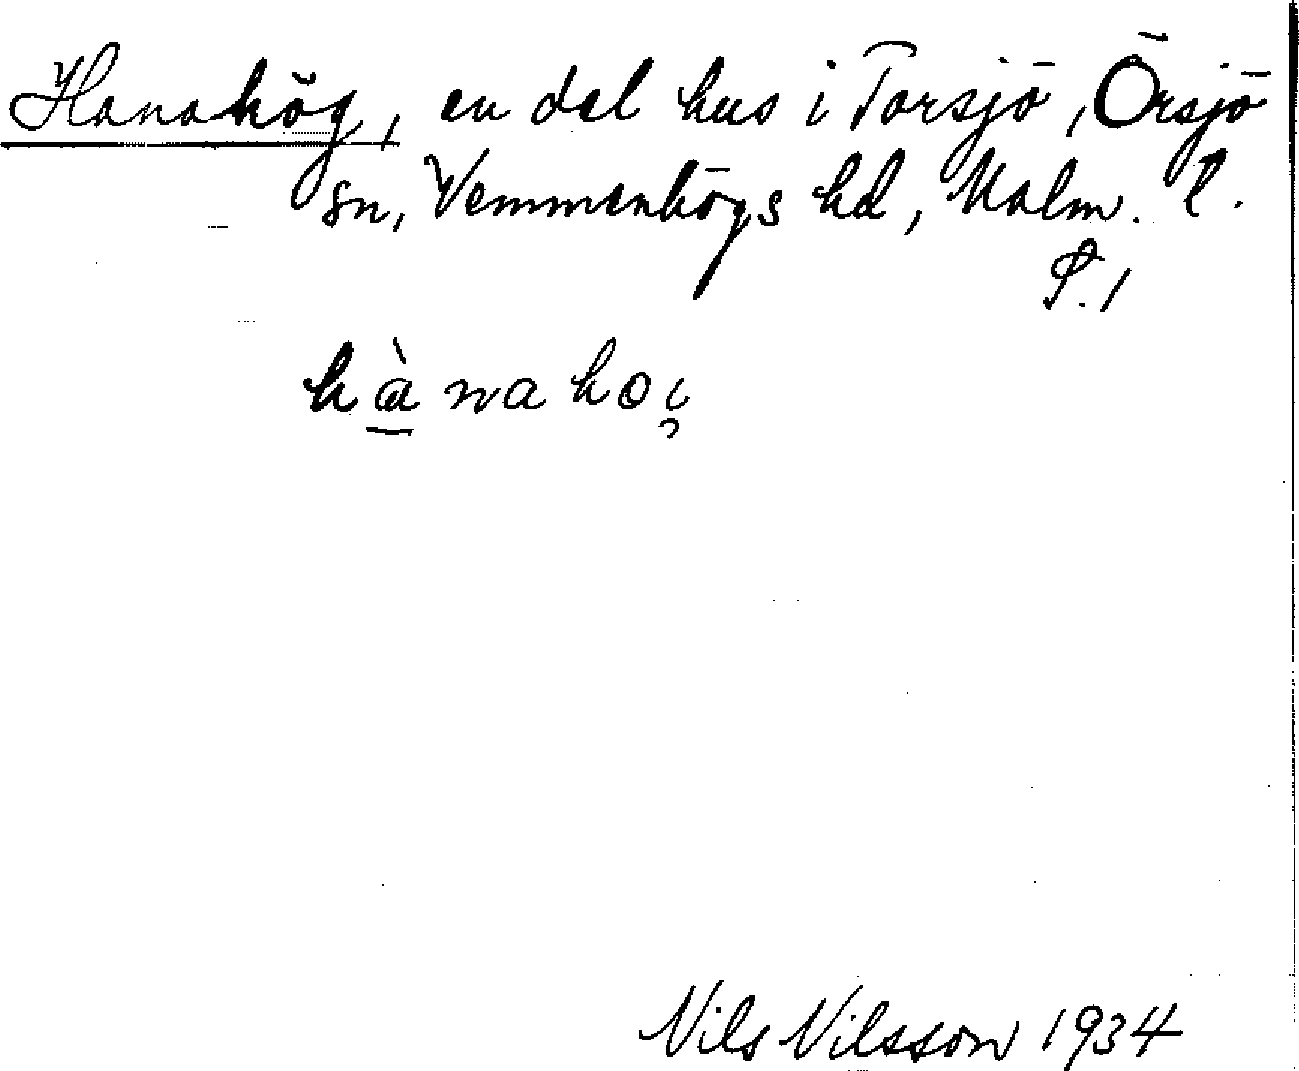 Hanahög, en del hus i Torsjö, Örsjö
sn, Vemmenhögs hd, Malm. l.
S. 1
hànahoi̯
Nils Nilsson 1934